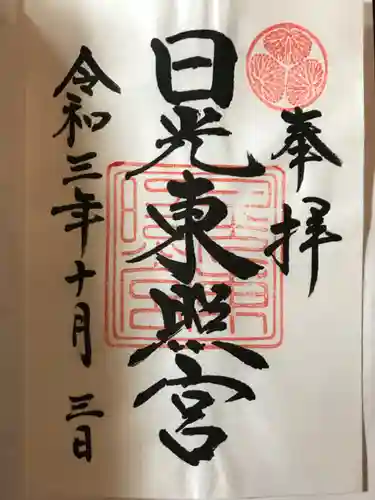 奉拝
日光東照宮
令和三年十月三日